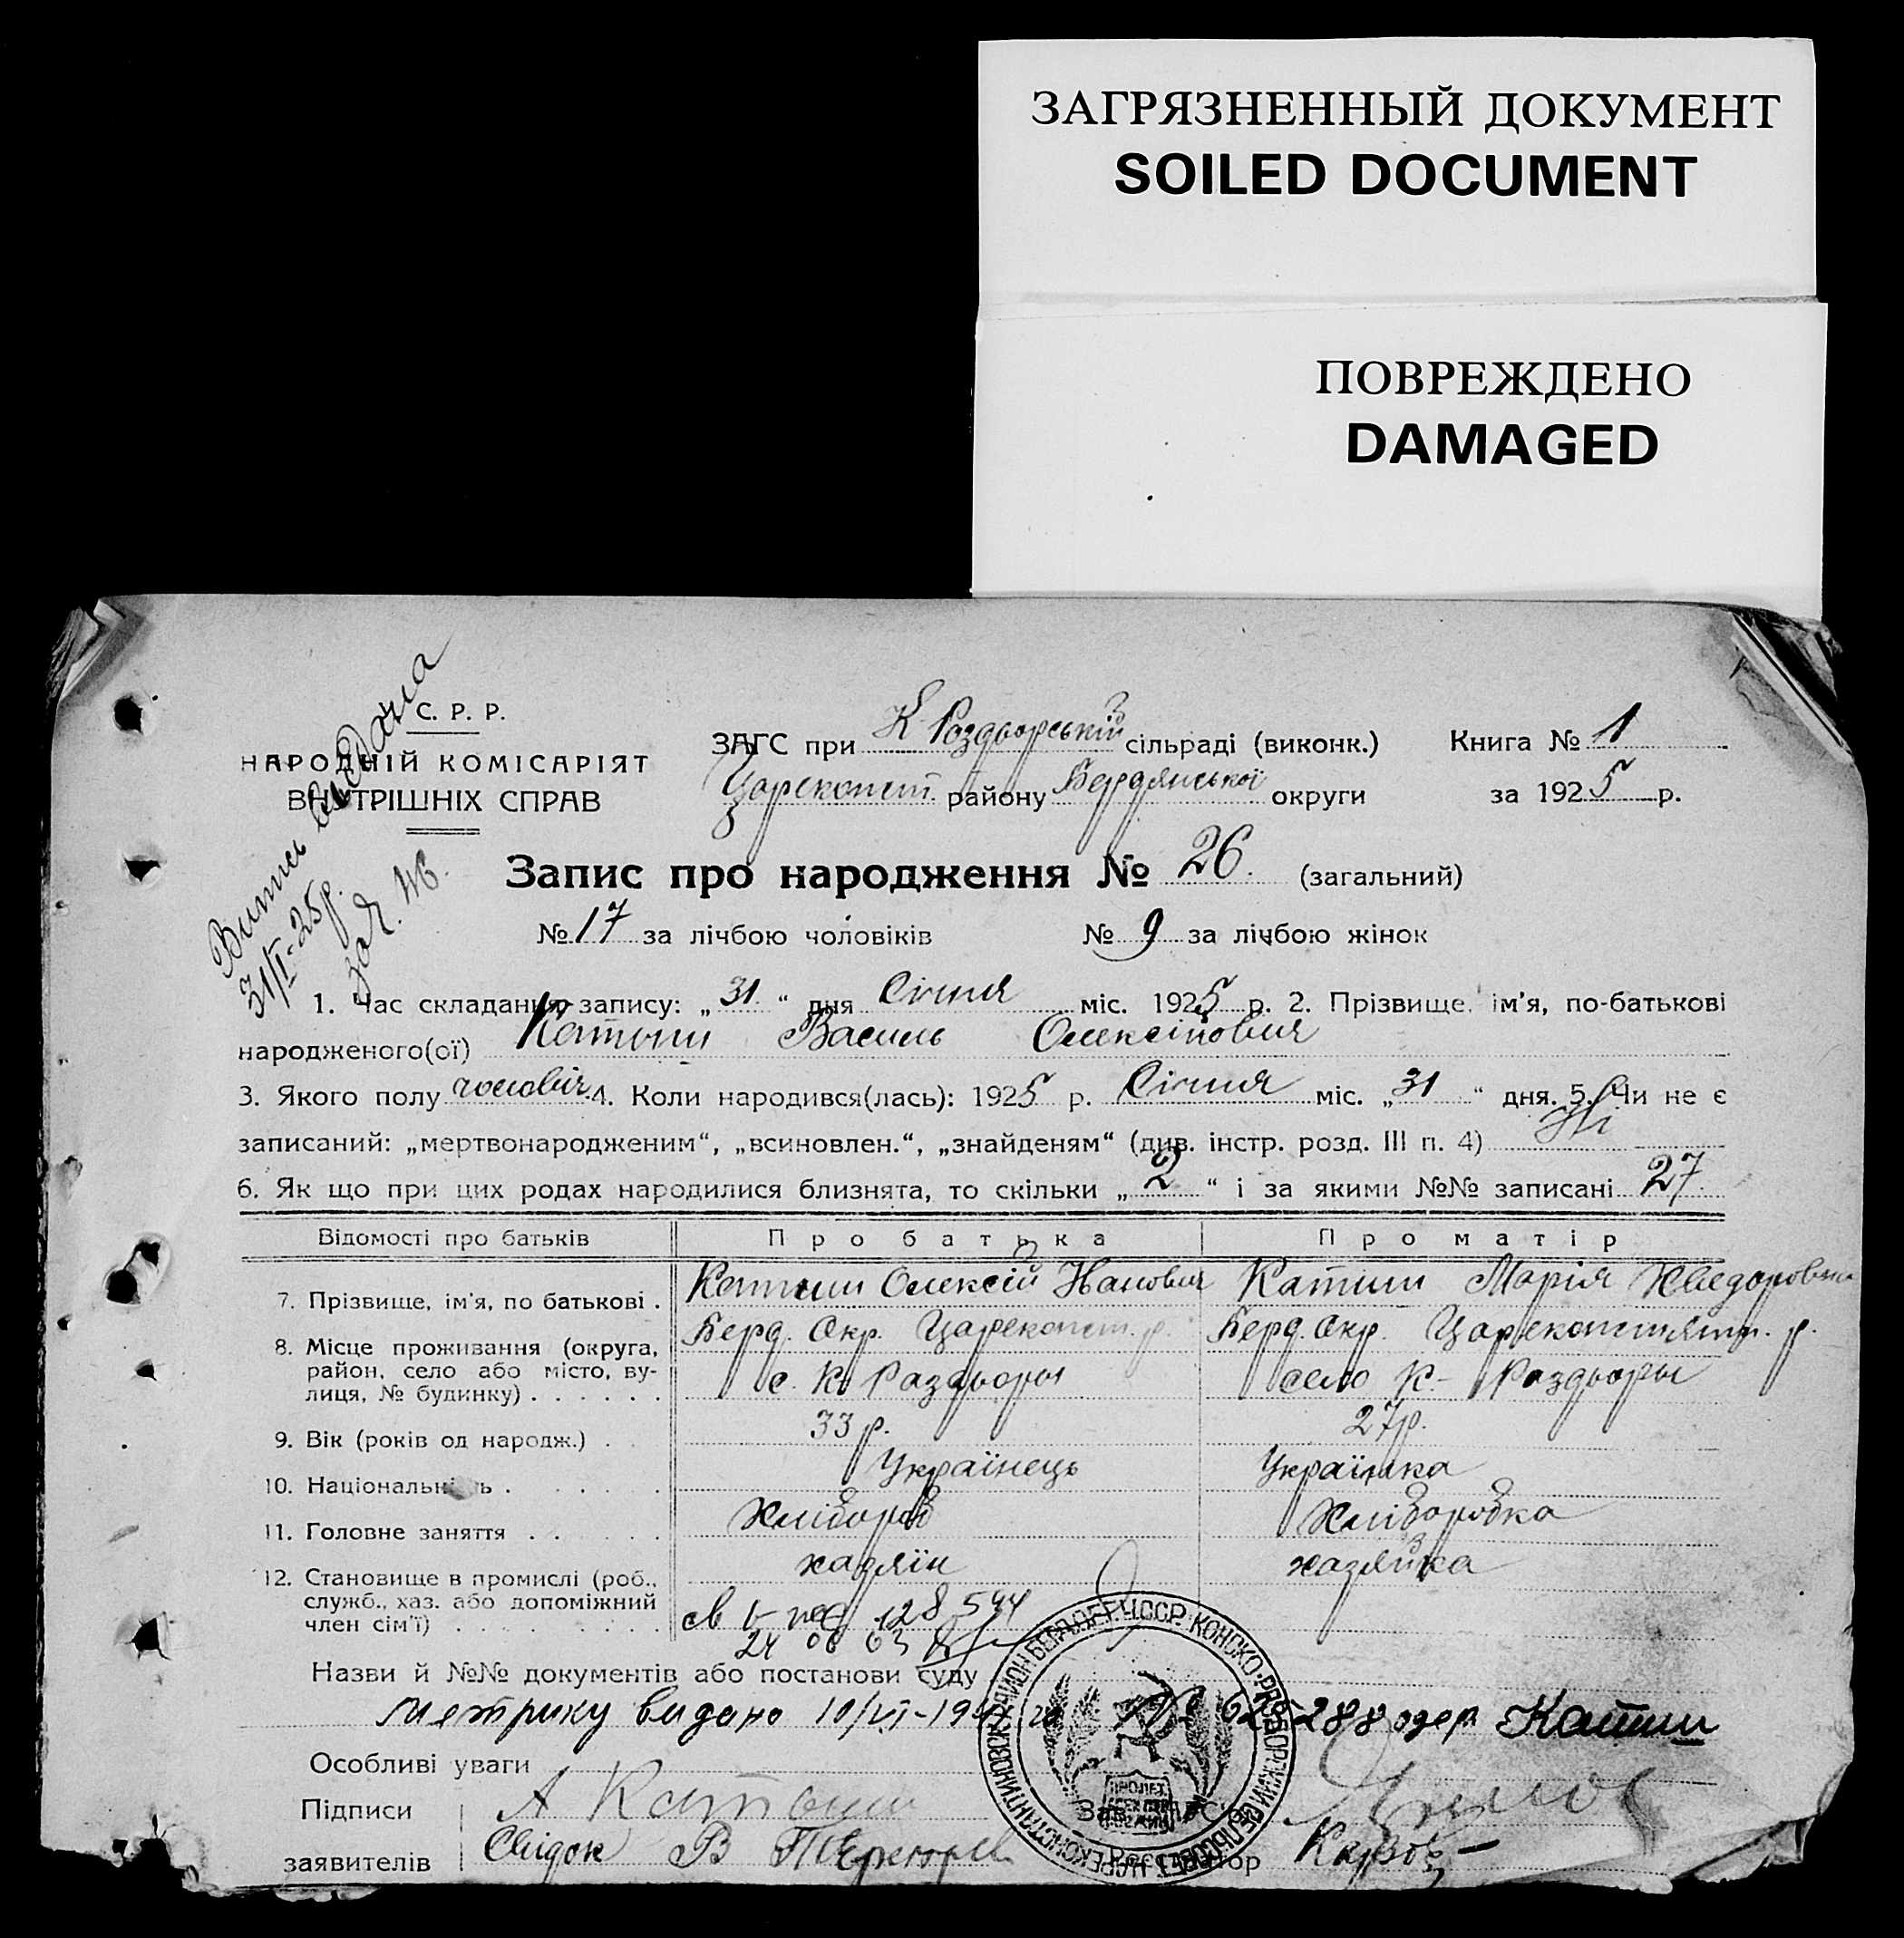 ЗАГРЯЗНЕННЫЙ ДОКУМЕНТ
SOILED DOCUMENT
ПОВРЕЖДЕНО
DAMAGED
Випись видана
31/I-25 р.
С. Р. Р.
НАРОДНІЙ КОМІСАРІЯТ
ВНУТРІШНІХ СПРАВ
ЗАГС при К Роздворській сільраді (виконк.) Книга № 1
Царекопст. району Бердянської округи за 1925 р.
Запис про народження № 26. (загальний)
№ 17 за лічбою чоловіків № 9 за лічбою жінок
1. Час складання запису: „31“ дня Січня міс. 1925 р. 2. Прізвище, ім’я, по-батькові
народженого(ої) Катыш Василь Олексійович
3. Якого полу чоловіч. 4. Коли народився(лась): 1925 р. Січня міс. „31“ дня. 5. Чи не є
записаний: „мертвонародженим“, „всиновлен.“, „знайденям“ (див. інстр. розд. III п. 4) Ні
6. Як що при цих родах народилися близнята, то скільки „2“ і за якими №№ записані 27
Відомості про батьків Про батька Про матір
7. Прізвище, ім’я, по батькові . Катиш Олексій Іванович Катиш Марія Хведоровна
8. Місце проживання (округа, Берд. Окр. Царекопст. р. Берд. Окр. Царекопстянт. р.
район, село або місто, ву-
лиця, № будинку) . . . . . . с. К Раздворы село К- Раздворы
9. Вік (років од народж.) . . 33 р. 27 р.
10. Національність . . . . . Українець Українка
11. Головне заняття . . . . . Хлібороб Хлібородка
12. Становище в промислі (роб., хазяїн хазяйка
служб., хаз. або допоміжний
член сім’ї) . . . . . . . . . 128 544
24 06 63
Назви й №№ документів або постанови суду
метрику видано 10/VI-19 288 одер Катиш
Особливі уваги
Підписи А Катыш
Зав. ЗАГС’ом
заявителів Свідок В
Реєстратор